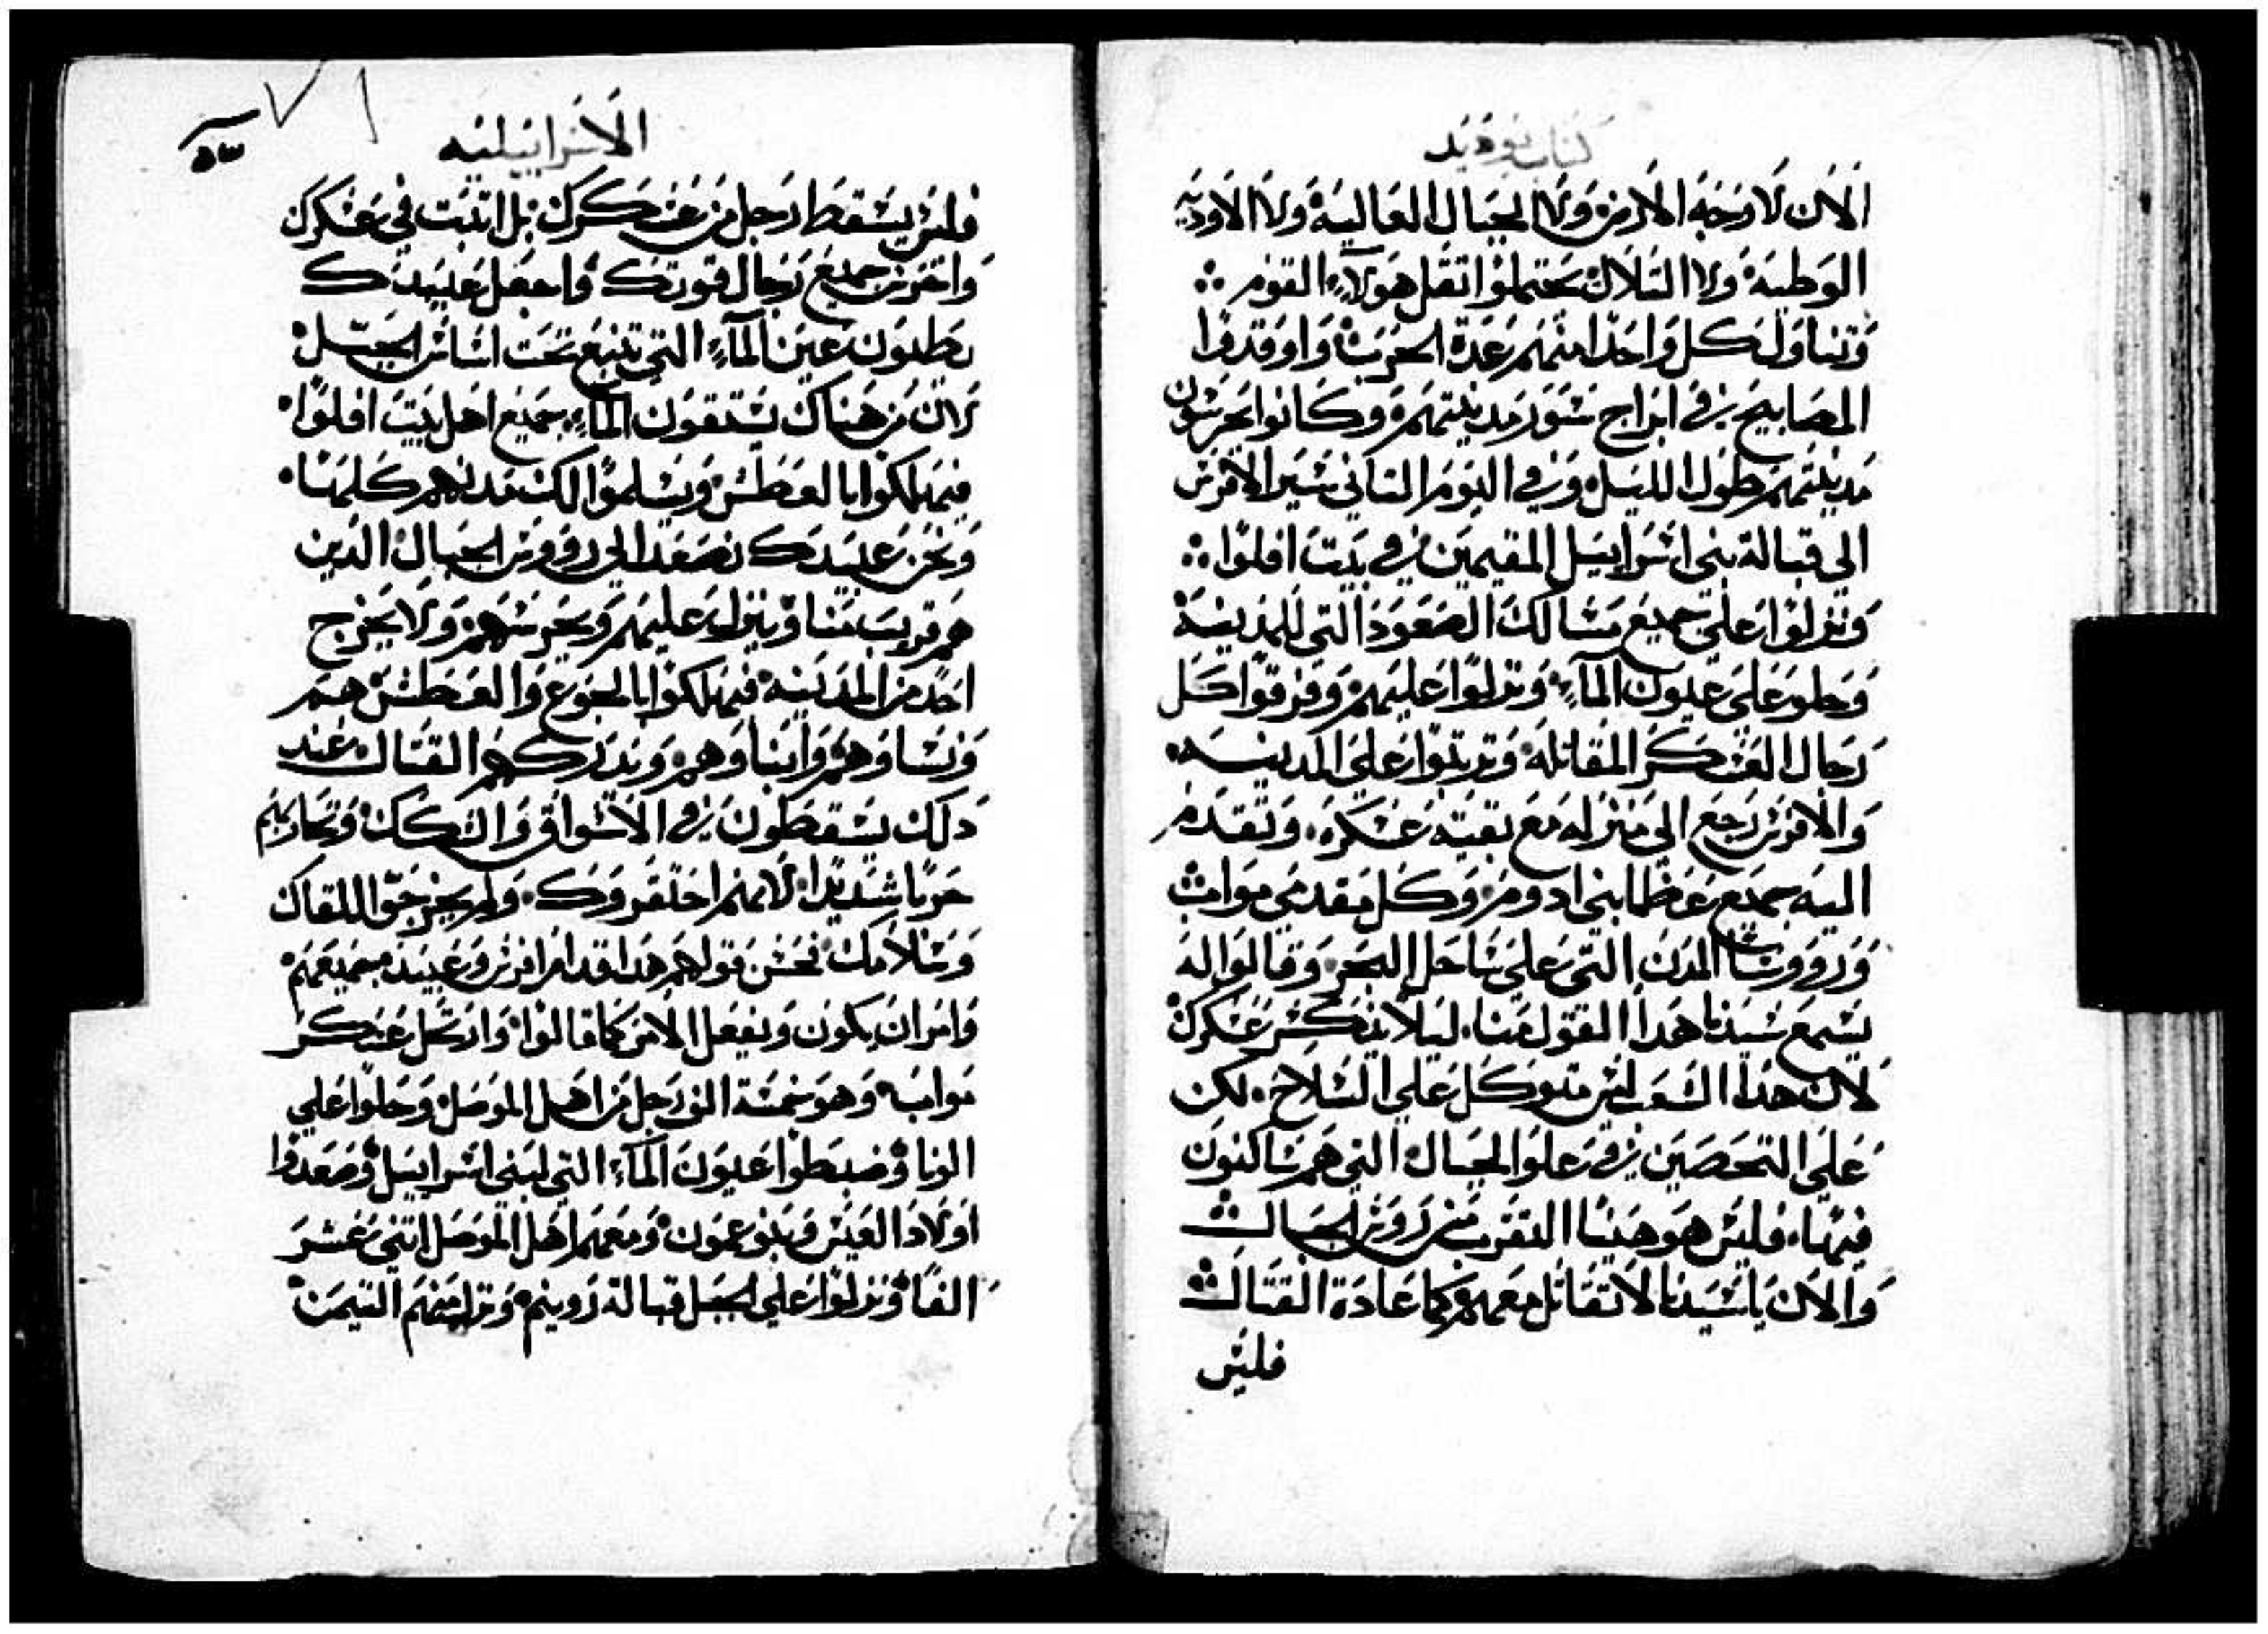 كتاب يوديد
الان لا رحبة الارض ولا الجبال العالية ولا الاودية
الوطية ولا التلال يحتملوا تقل هولاء القوم
وتناول كل واحد منهم عدة الحرب واوقدوا
المصابيح في ابراج سور مدينتهم وكانوا يحرسون
مدينتهم طول الليل وفي اليوم التاني سير الافرنس
الي قبالة بني اسراييل المقيمين في بيت افلوا
ونزلوا علي جميع مسالك الصعود التي للمدينة
وحلو علي عيون الماء ونزلوا عليهم وفرقوا كل
رجال العسكر المقاتلة وترتبوا علي المدينه
والافرنس رجع الي منزله مع بقيته عسكره وتقدم
اليه جميع عظما بني ادوم وكل مقدمي مواب
وروسا المدن التي علي ساحل البحر وقالوا له
يسمع سيدنا هدا القول منا ليلا ينكسر عسكرك
لان هدا الشعب ليس متوكل علي السلاح لكن
علي التحصين في علو الجبال التي هم ساكنون
فيها فليس هو هينا التقرب من روس الجبال
والان يا سيدنا لا تقاتل معهم كما عادة القتال
فليس
الاسراييليه
فليس يسقط رجل من عسكرك بل اتبت في عسكرك
واحرس جميع رجال قوتك واجعل عبيدك
يطلبون عين الماء التي تنبع تحت اساس الجبل
لان من هناك يستقون الماء جميع اهل بيت افلوا
فيهلكوا بالعطش ويسلموا لك مدنهم كلها
ونحن عبيدك نصعد الي روس الجبال الدين
هم قريب منا وننزل عليهم ونحرسهم ولا يخرج
احد من المدينه فيهلكوا بالجوع والعطش هم
ونساوهم وابناوهم ويدركهم القتال عند
دلك يسقطون في الاسواق والسكك وتحاربهم
حربا شديدا لانهم احتقروك ولم يخرجوا للقاك
وسلامك فحسن قولهم هدا قدام افرنس وعبيده جميعهم
وامر ان يكون ويفعل الامر كما قالوا وارتحل عسكر
مواب وهو خمسة الف رجل من اهل الموصل وحلوا علي
الونا وضبطوا عيون الماء التي لبني اسراييل وصعدوا
اولاد العيس وبنو عمون ومعهم اهل الموصل اتني عشر
الفا ونزلوا علي الجبل قبالة روينم ونزل منهم التيمن